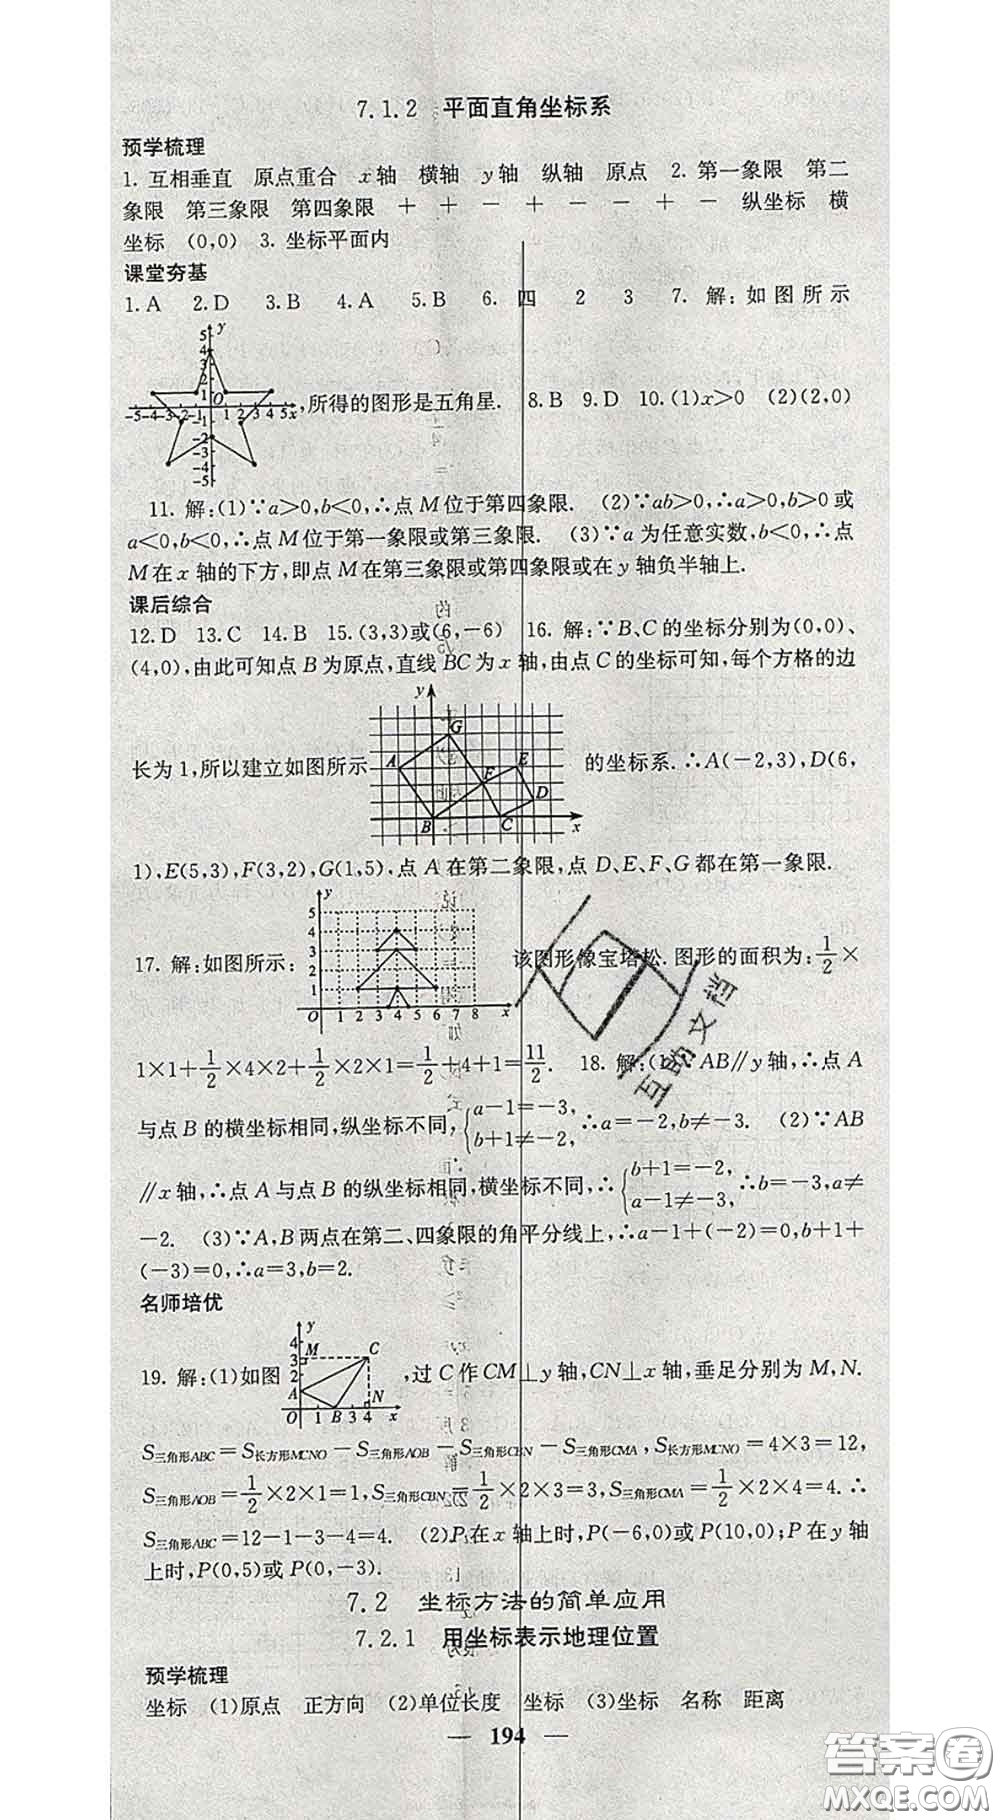 7.1.2 平面直角坐标系
预学梳理
1. 互相垂直 原点重合 x轴 横轴 y轴 纵轴 原点 2. 第一象限 第二
象限 第三象限 第四象限 + + − + − − + − 纵坐标 横
坐标 (0,0) 3. 坐标平面内
课堂夯基
1. A 2. D 3. B 4. A 5. B 6. 四 2 3 7. 解:如图所示
,所得的图形是五角星. 8. B 9. D 10. (1)x>0 (2)(2,0)
11. 解:(1)∵a>0,b<0,∴点M位于第四象限. (2)∵ab>0,∴a>0,b>0或
a<0,b<0,∴点M位于第一象限或第三象限. (3)∵a为任意实数,b<0,∴点
M在x轴的下方,即点M在第三象限或第四象限或在y轴负半轴上.
课后综合
12. D 13. C 14. B 15. (3,3)或(6,−6) 16. 解:∵B、C的坐标分别为(0,0)、
(4,0),由此可知点B为原点,直线BC为x轴,由点C的坐标可知,每个方格的边
长为1,所以建立如图所示 的坐标系.∴A(−2,3),D(6,
1),E(5,3),F(3,2),G(1,5),点A在第二象限,点D、E、F、G都在第一象限.
17. 解:如图所示: 该图形像宝塔松. 图形的面积为:1/2×
1×1+1/2×4×2+1/2×2×1=1/2+4+1=11/2. 18. 解:(1)∵AB∥y轴,∴点A
与点B的横坐标相同,纵坐标不同,{a−1=−3, b+1≠−2, ∴a=−2,b≠−3. (2)∵AB
∥x轴,∴点A与点B的纵坐标相同,横坐标不同,∴{b+1=−2, a−1≠−3, ∴b=−3,a≠
−2. (3)∵A,B两点在第二、四象限的角平分线上,∴a−1+(−2)=0,b+1+
(−3)=0,∴a=3,b=2.
名师培优
19. 解:(1)如图 ,过C作CM⊥y轴,CN⊥x轴,垂足分别为M,N.
S三角形ABC=S长方形MCNO−S三角形AOB−S三角形CBN−S三角形CMA,S长方形MCNO=4×3=12,
S三角形AOB=1/2×2×1=1,S三角形CBN=1/2×2×3=3,S三角形CMA=1/2×2×4=4.∴
S三角形ABC=12−1−3−4=4. (2)P在x轴上时,P(−6,0)或P(10,0);P在y轴
上时,P(0,5)或P(0,−3).
7.2 坐标方法的简单应用
7.2.1 用坐标表示地理位置
预学梳理
坐标 (1)原点 正方向 (2)单位长度 坐标 (3)坐标 名称 距离
— 194 —
互助文档
答案圈
MXQE.COM